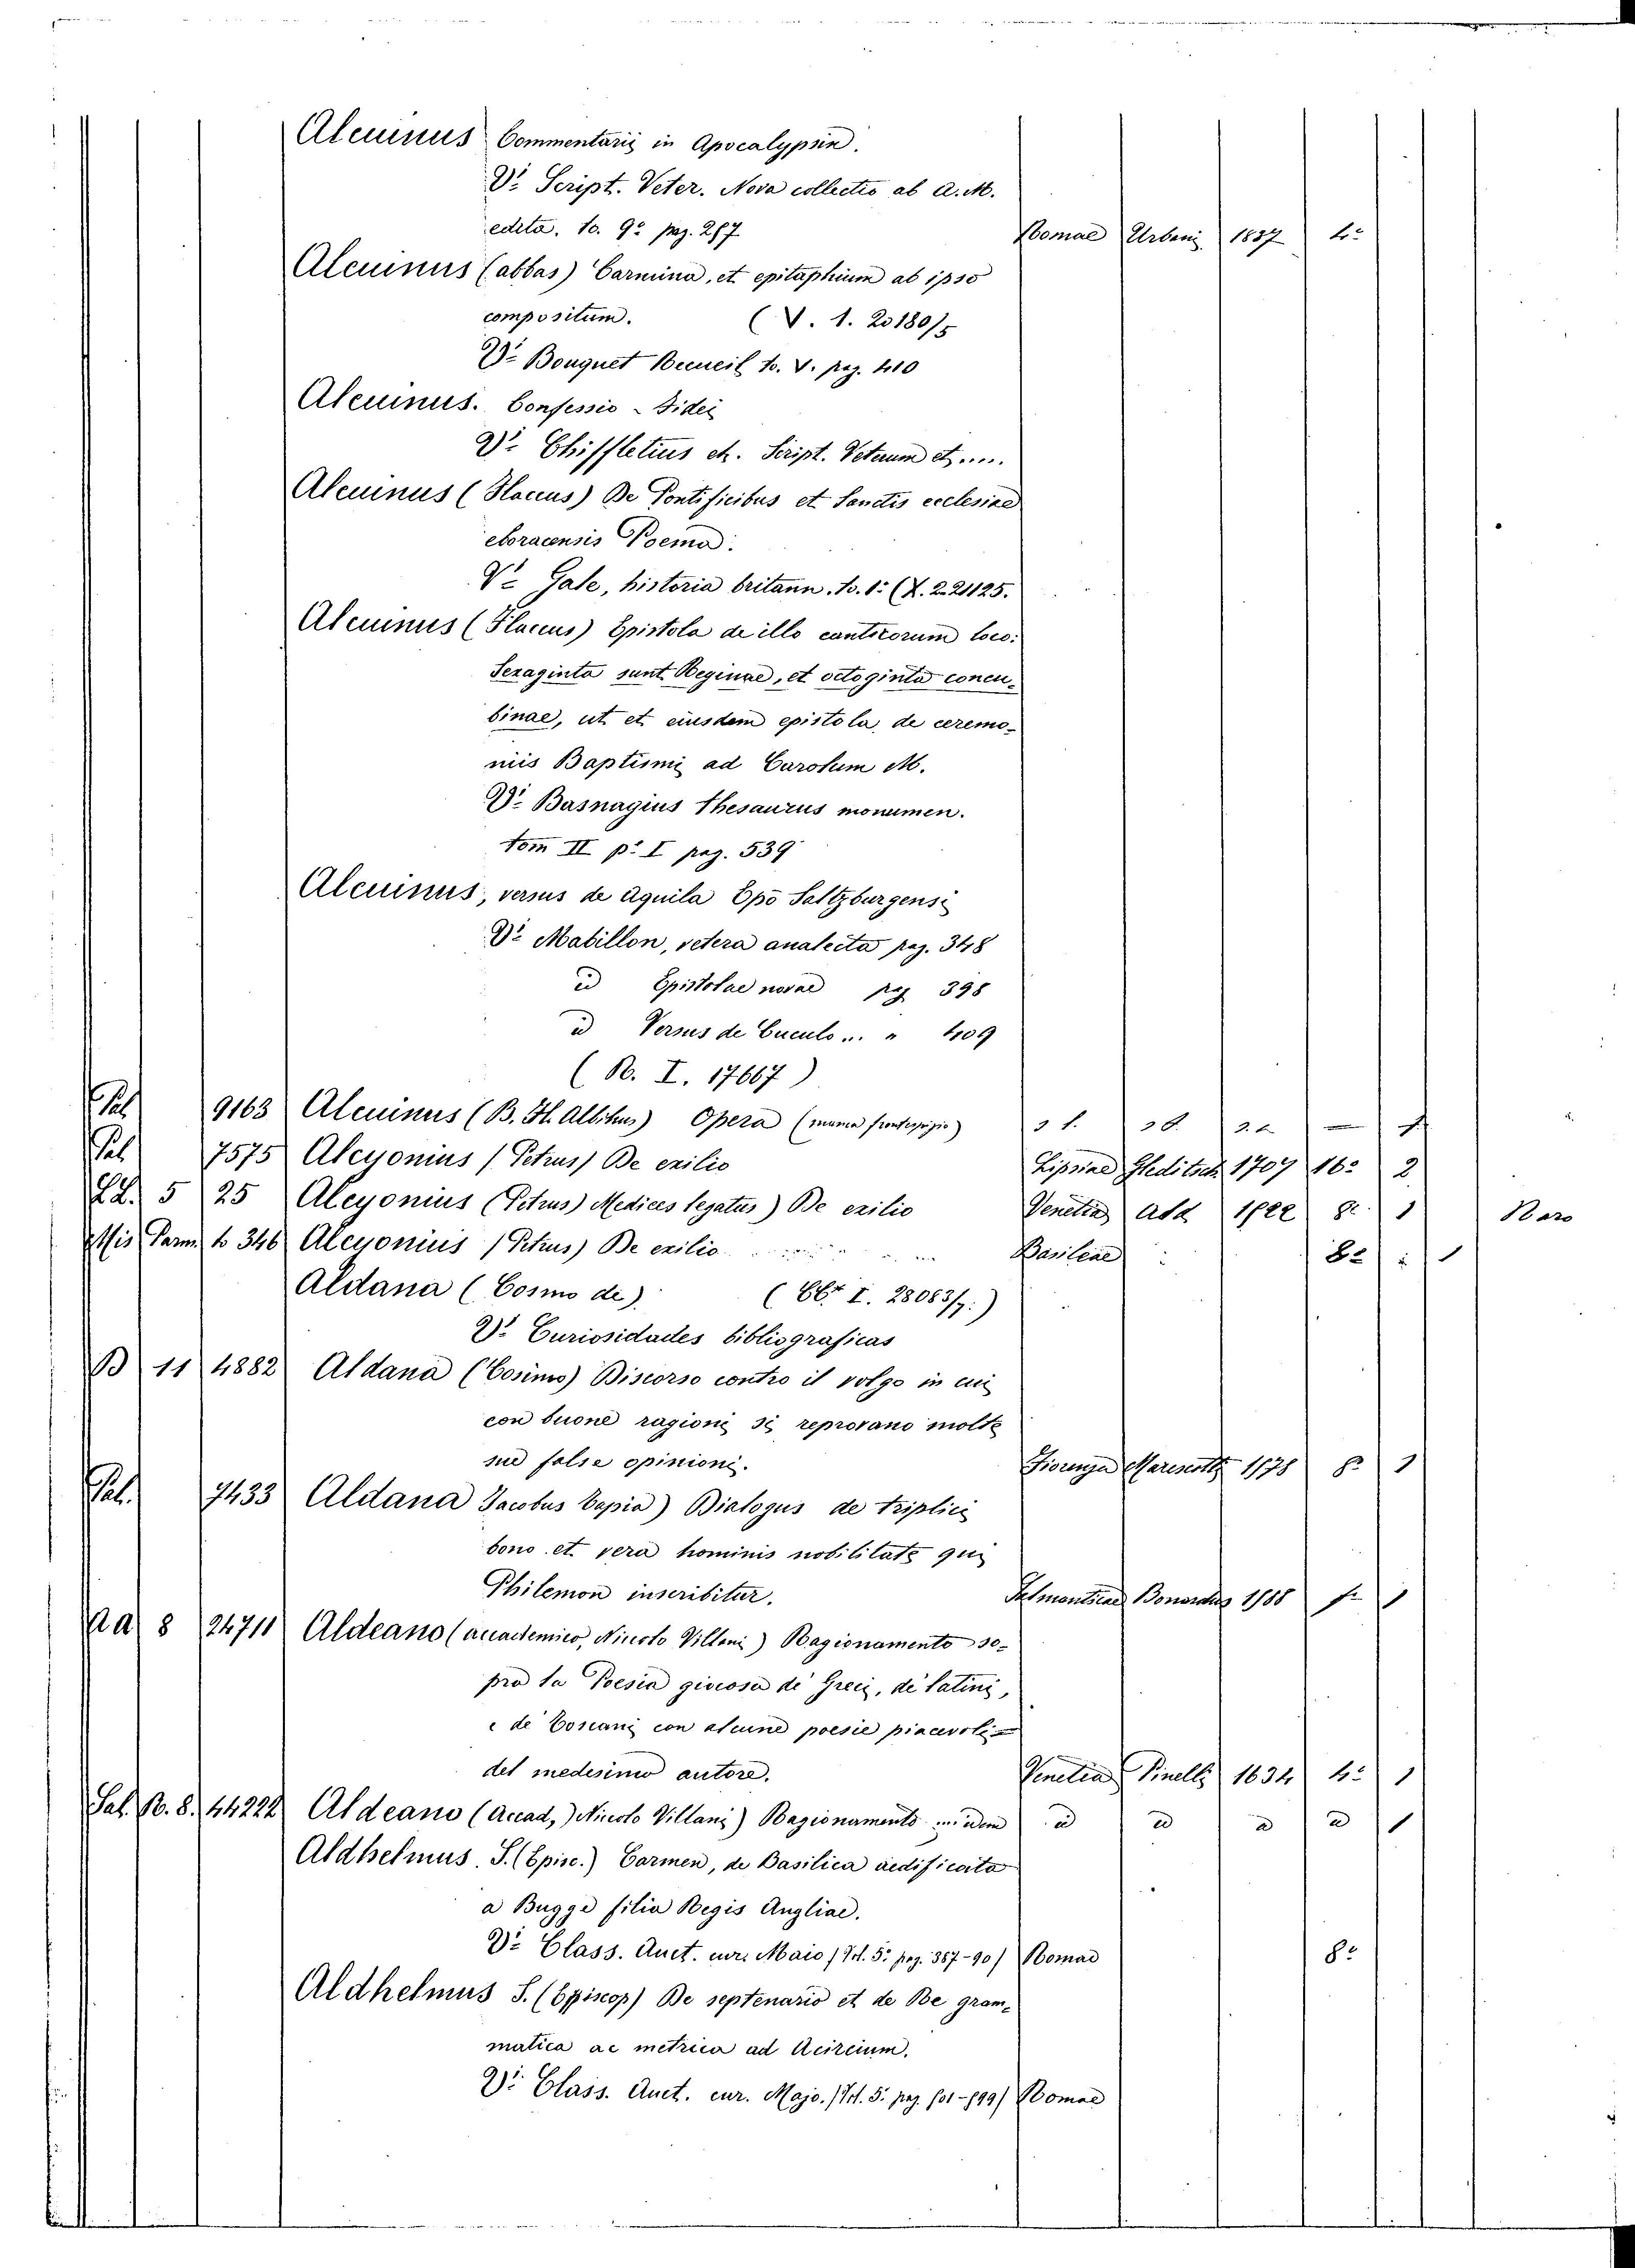 Alcuinus Commentarii in Apocalypsin.
V: Script. Veter. Nova collectio ab A. M.
edita. to. 9: pag. 257 Romae Urbani 1837 4:
Alcuinus (abbas) Carmina, et epitaphium ab ipso
compositum. (V. 1. 20180/5
V: Bouquet Recueil to. V. pag. 410
Alcuinus. Confessio Fidei
V: Chiffletius etc. Script. Veterum et ....
Alcuinus (Flaccus) De Pontificibus et Sanctis ecclesiae
eboracensis Poema.
V: Gale, historia britann. to. 1: (X. 2. 21125.
Alcuinus (Flaccus) Epistola de illo canticorum loco:
Sexaginta sunt Reginae, et octoginta concu-
binae, ut et eiusdem epistola de ceremo-
niis Baptismi ad Carolum M.
V: Basnagius Thesaurus monumen.
tom II p: I pag. 539
Alcuinus, versus de Aquila Epo Saltzburgensi
V: Mabillon, vetera analecta pag. 348
id Epistolae novae pag 398
id Versus de Cuculo ... " 409
(R. I. 17667)
Pal 9163 Alcuinus (B. Fl. Albinus) Opera (manca frontespizio) s l. s d. f 1
Pal 7575 Alcyonius (Petrus) De exilio Lipsiae Gleditsch 1707 16: 2
LL. 5 25 Alcyonius (Petrus) Medices legatus) De exilio Venetia Ald 1522 8: 1 Raro
Mis Parm to 346 Alcyonius (Petrus) De exilio Basileae 8: 1
Aldana (Cosmo de) (I. 28083/7.)
V: Curiosidades bibliograficas
B 11 4882 Aldana (Cosimo) Discorso contro il volgo in cui
con buone ragioni si reprovano molte
sue false opinioni. Fiorenza Marescotti 1578 8: 1
Pal. 7433 Aldana Jacobus Capia) Dialogus de triplici
bono et vera hominis nobilitate qui
Philemon inscribitur. Salmanticae Bonardus 1588 f: 1
Aa 8 24711 Aldeano (accademico, Nicolo Villani) Ragionamento so-
pra la Poesia giocosa de' Greci, de' Latini,
e de' Toscani con alcune poesie piacevoli
del medesimo autore. Venetia Pinelli 1634 4: 1
Sal. R. 8. 44222 Aldeano (Accad,) Nicolo Villani) Ragionamento ... idem id id id id 1
Aldhelmus. S. (Episc.) Carmen, de Basilica aedificata
a Bugge filia Regis Angliae.
V: Class. Auct. cur. Maio / Vol. 5: pag. 387-90/ Romae 8:
Aldhelmus S. (Episcop) De septenario et de Re gram-
matica ac metrica ad Acircium.
V: Class. Auct. cur. Majo. / Vol. 5: pag. 501-599/ Romae